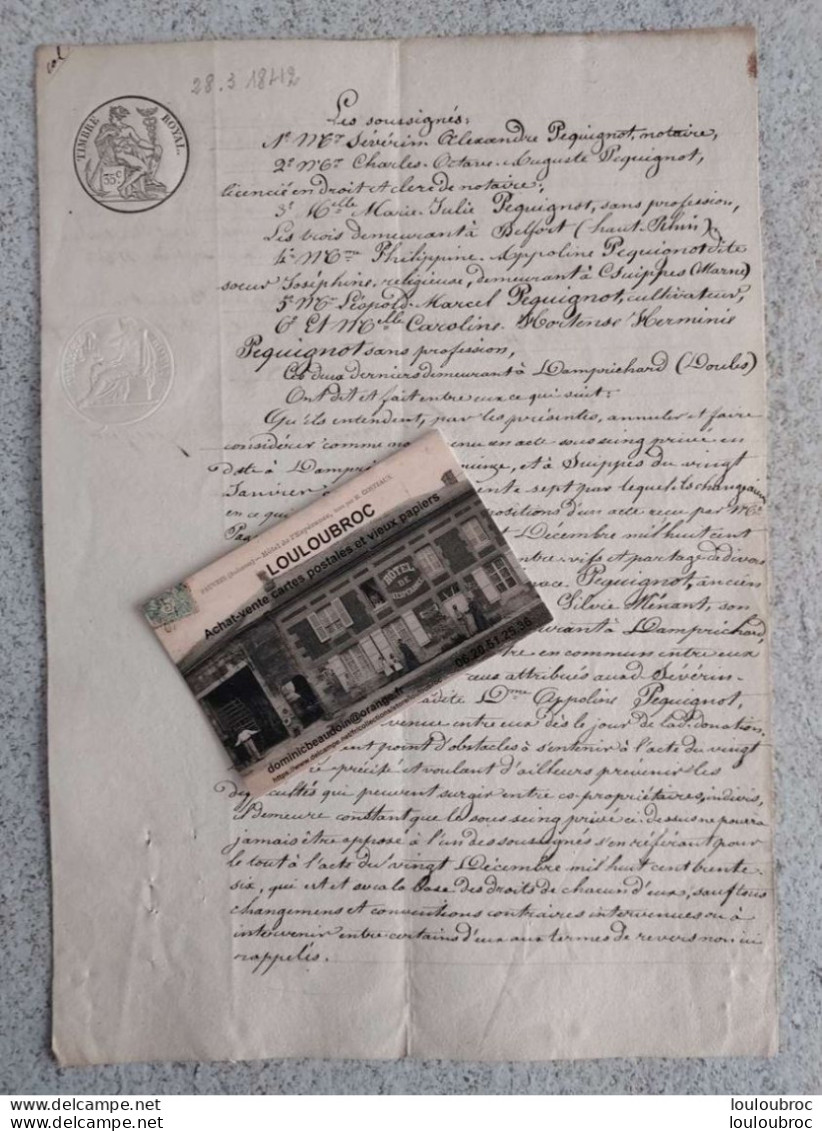 28.3 1842
TIMBRE ROYAL.
35 C
Les soussignés:
1º Mr Sévérin Alexandre Pequignot, notaire,
2º Mr Charles-Octave-Auguste Pequignot,
licencié en droit et clerc de notaire,
3º Melle Marie Julie Pequignot, sans profession,
Les trois demeurant à Belfort (haut-Rhin).
4º Mme Philippine-Appoline Pequignot dite
soeur Joséphine, religieuse, demeurant à Suippes (Marne)
5º Mr Léopold-Marcel Pequignot, cultivateur,
6º Et Melle Caroline Hortense Herminie
Pequignot sans profession,
Ces deux derniers demeurant à Damprichard (Doubs)
Ont dit et fait entre eux ce qui suit:
Qu'ils entendent, par les présentes, annuler et faire
considérer comme non enu un acte sous seing privé en
date à Dampri quinze, et à Suippes du vingt
Janvier ente sept par lequel ils changeaient
en ce qui positions d'un acte reçu par Me
Décembre mil huit cent
entre-vifs et partage à divers
ace Pequignot, ancien
Silvie Ménant, son
urant à Damprichard,
re en commun entre eux
aux attribués aux d. Sévérin
adite Dme Appoline Pequignot,
venue entre eux dès le jour de lad. donation.
ent point d'obstacles à s'en tenir à l'acte du vingt
précité et voulant d'ailleurs prévenir les
difficultés qui peuvent surgir entre co-propriétaires indivis,
Demeure constant que le sous seing privé ci-dessus ne pourra
jamais être opposé à l'un des soussignés s'en référant pour
le tout à l'acte du vingt Décembre mil huit cent trente-
six, qui est et sera la base des droits de chacun d'eux, sauf tous
changemens et conventions contraires intervenues ou à
intervenir entre certains d'eux aux termes de revers non ici
rappelés.
Hôtel de l'Espérance, tenu par
LOULOUBROC
Achat-vente cartes postales et vieux papiers
HÔTEL
DE
06.20.51.25.36
dominicbeaudoin@orange.fr
delcampe.net
louloubroc
louloubroc